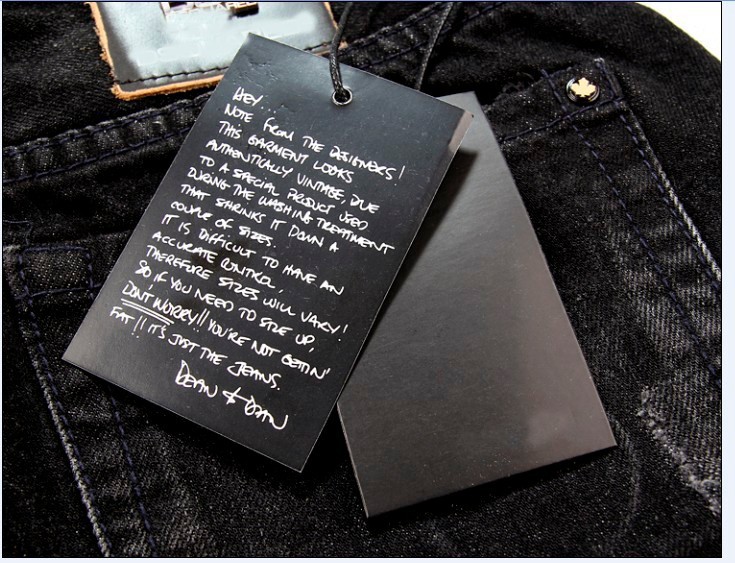 HEY...
NOTE FROM THE DESIGNERS!
THIS GARMENT LOOKS
AUTHENTICALLY VINTAGE, DUE
TO A SPECIAL PRODUCT USED
DURING THE WASHING TREATMENT
THAT SHRINKS IT DOWN A
COUPLE OF SIZES.
IT IS DIFFICULT TO HAVE AN
ACCURATE CONTROL,
THEREFORE SIZES WILL VARY!
SO IF YOU NEED TO SIZE UP,
DON'T WORRY!! YOU'RE NOT GETTIN'
FAT!! IT'S JUST THE JEANS.
DEAN & DAN